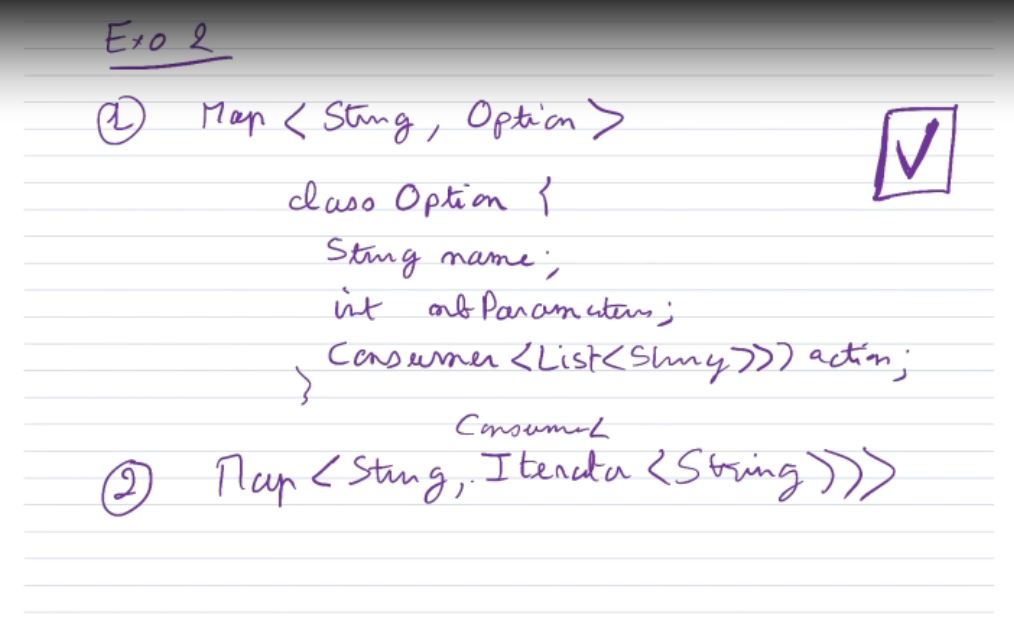 Exo 2
① Map < String, Option >
class Option {
String name;
int nbParameters;
Consumer <List<String>>> action;
}
Consumer<
② Map < String, Iterator <String>>>